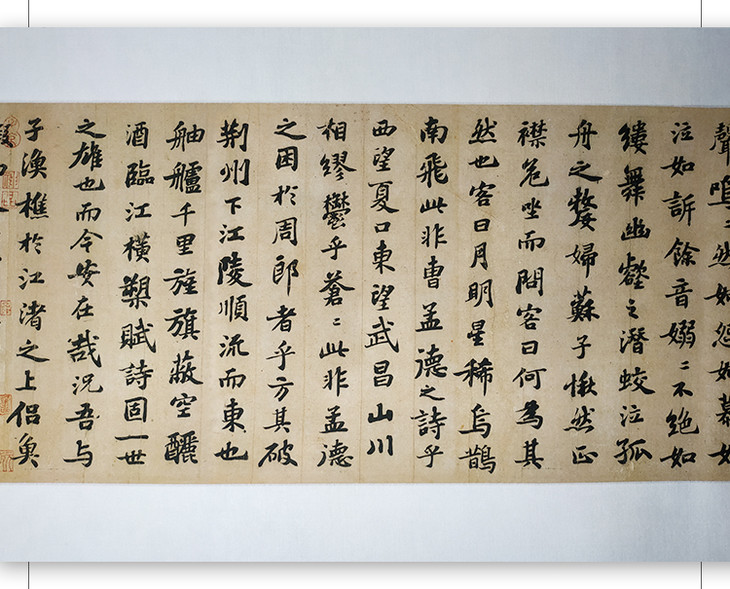 聲嗚〻然如怨如慕如
泣如訴餘音嫋〻不絕如
縷舞幽壑之潛蛟泣孤
舟之嫠婦蘇子愀然正
襟危坐而問客曰何為其
然也客曰月明星稀烏鵲
南飛此非曹孟德之詩乎
西望夏口東望武昌山川
相繆鬱乎蒼〻此非孟德
之困於周郎者乎方其破
荊州下江陵順流而東也
舳艫千里旌旗蔽空釃
酒臨江橫槊賦詩固一世
之雄也而今安在哉況吾與
子漁樵於江渚之上侶魚